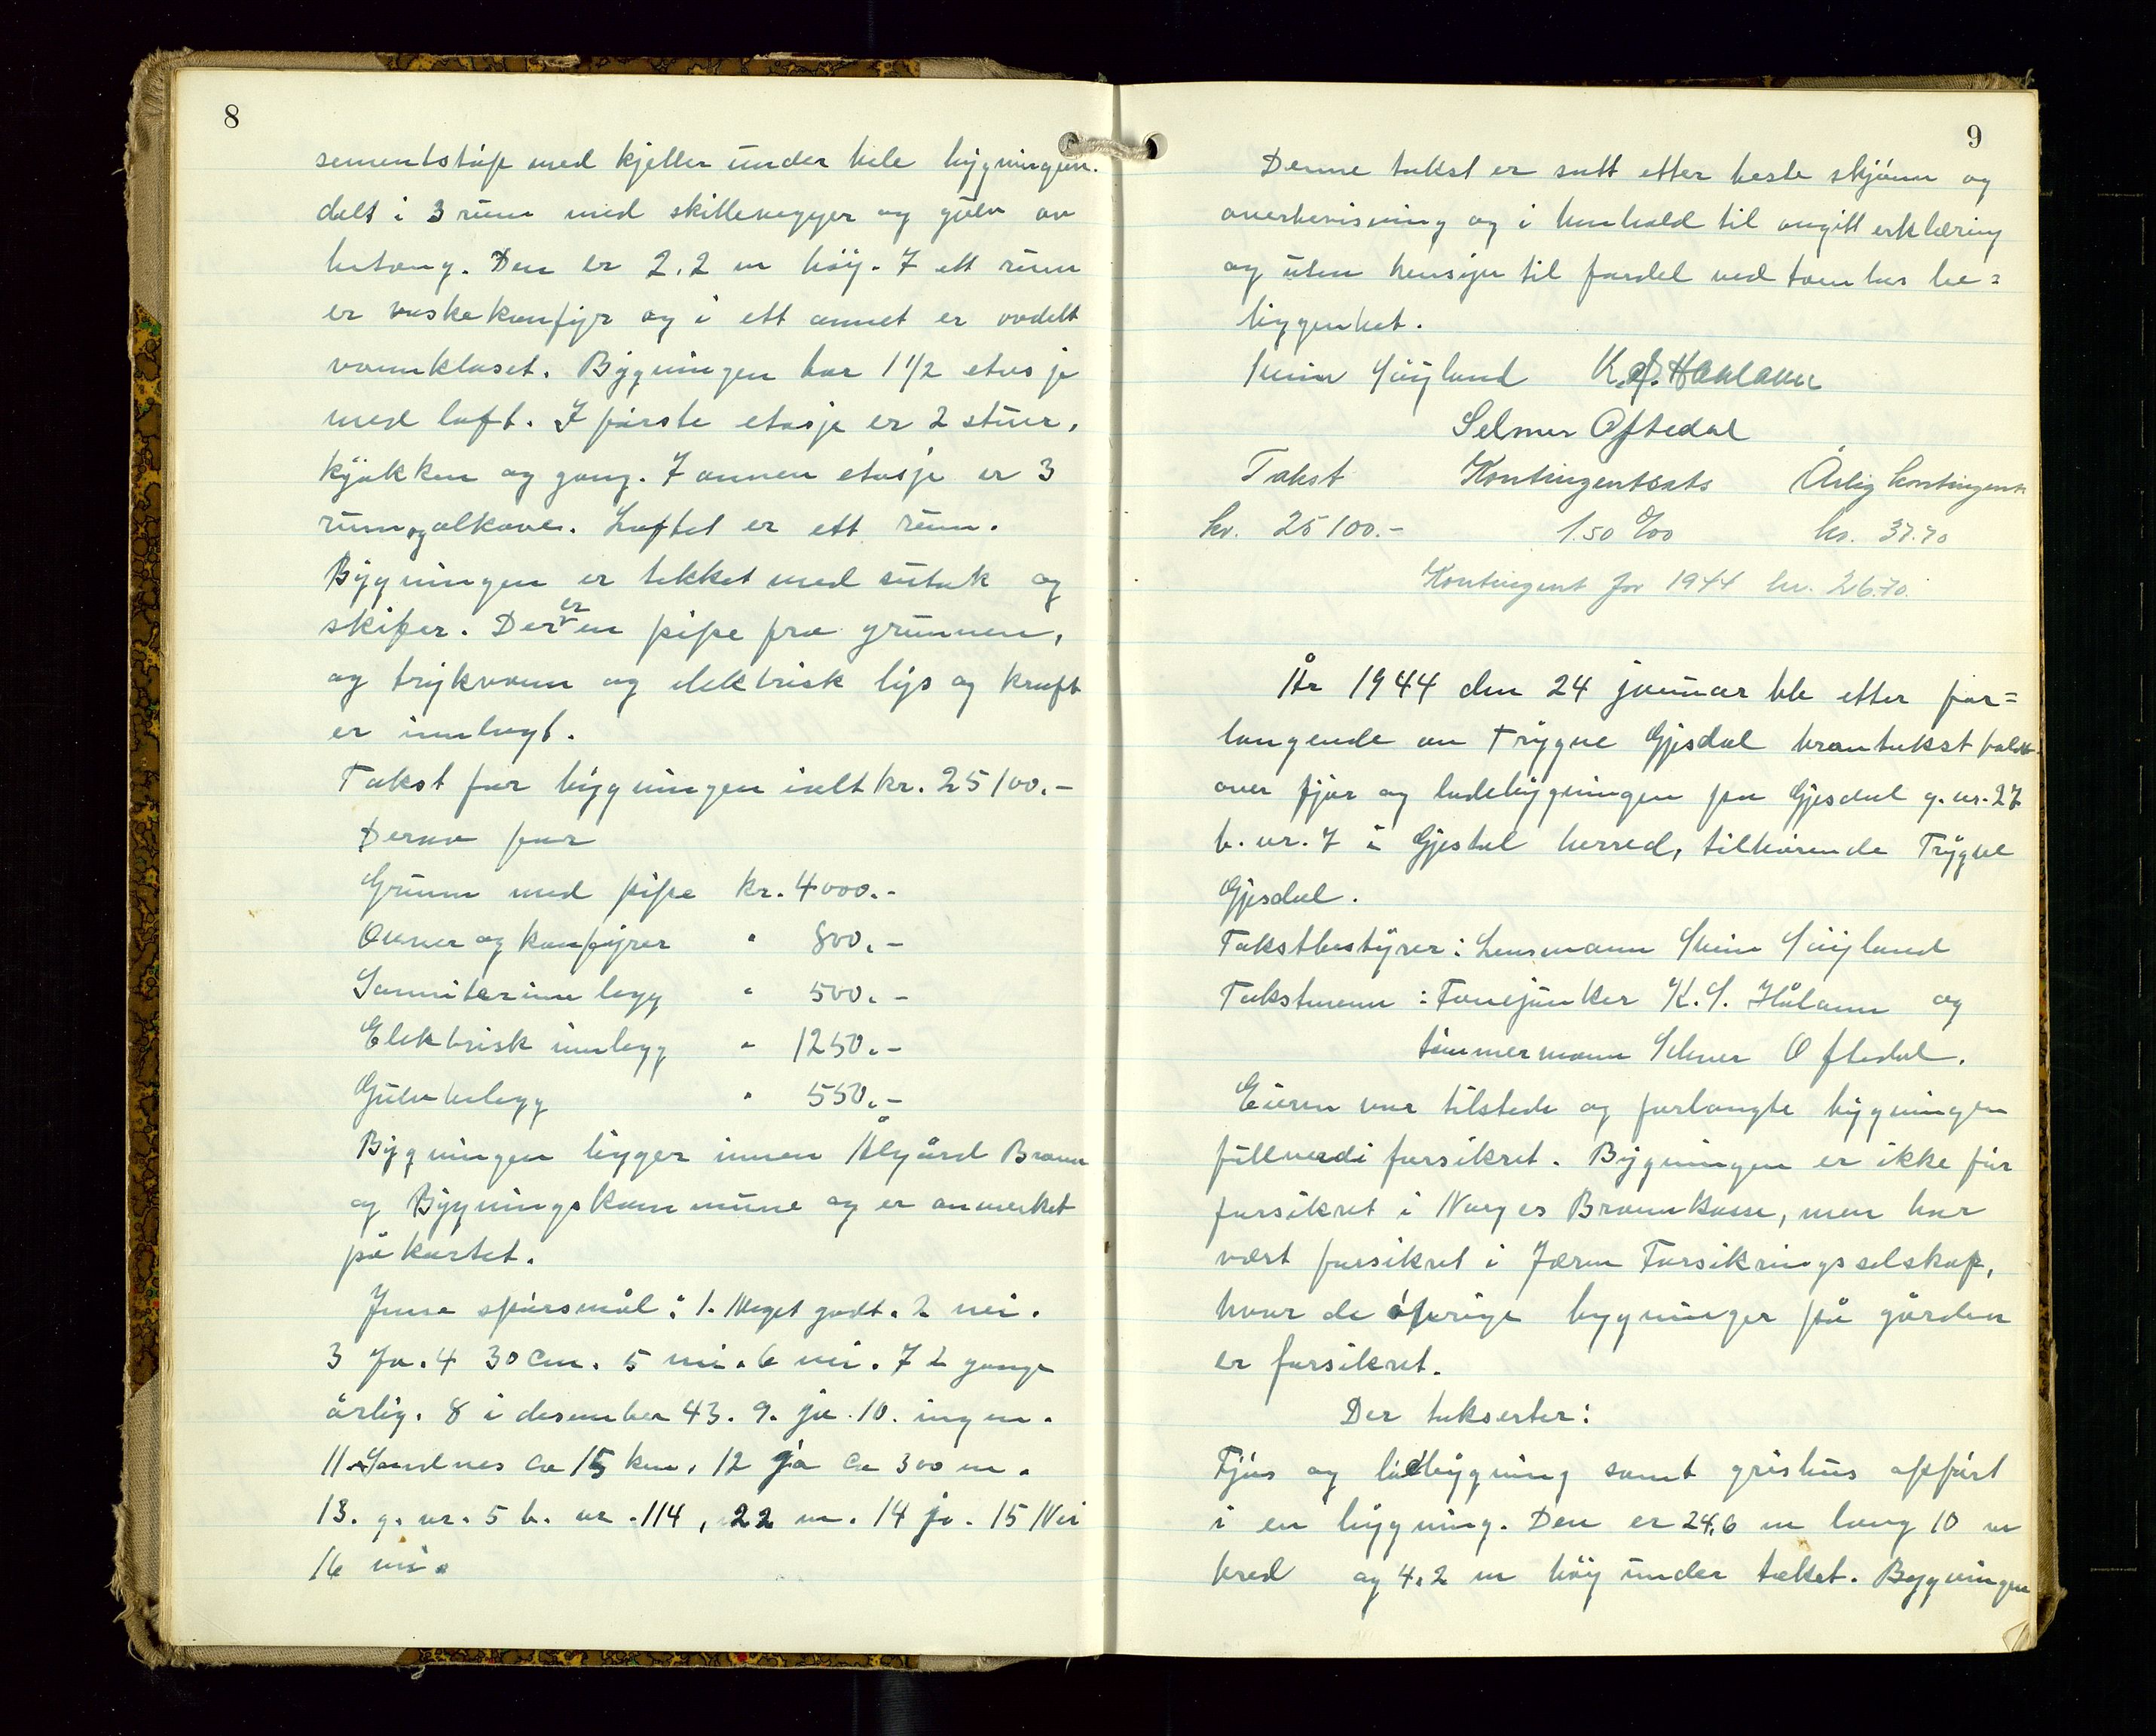 8
sementstøp med kjeller under hele bygningen.
delt i 3 rum med skillevegger og gulv av
betong. Den er 2,2 m høy. I ett rum
er vaskekomfyr og i ett annet er avdelt
vannkloset. Bygningen har 1 1/2 etasje
med loft. I første etasje er 2 stuer,
kjøkken og gang. I annen etasje er 3
rum og alkove. Loftet er ett rum.
Bygningen er tekket med sutak og
skifer. Der er en pipe fra grunnen,
og trykvann og elektrisk lys og kraft
er innlagt.
Takst for bygningen ialt kr. 25100.-
Derav for
Grunn med pipe kr. 4000.-
Ovner og komfyrer " 800.-
Sanniterinnlegg " 500.-
Elektrisk innlegg " 1250.-
Gulvbelegg " 550.-
Bygningen ligger innen Ålgård Brann
og Bygningskommune og er anmerket
på kartet.
Jmse spørsmål: 1. Meget godt. 2 nei.
3 Ja. 4 30 cm. 5 nei. 6 nei. 7 2 gange
årlig. 8 i desember 43. 9. ja. 10. ingen.
11. Sandnes ca 15 km. 12 ja ca 300 m.
13. g. nr. 5 b. nr. 114, 22 m. 14 ja. 15 Nei
16 nei.
9
Denne takst er satt etter beste skjønn og
overbevisning og i henhold til avgitt erklæring
og uten hensyn til fordel ved tomtens be=
liggenhet.
Svein Søyland K. S. Haalann
Selmer Oftedal
Takst Kontingentsats Årlig kontingent
kr. 25100.- 1.50 ‰ kr. 37.70
Kontingent for 1944 kr. 26.70.
År 1944 den 24 januar ble etter for=
langende av Trygve Gjesdal branntakst holdt
over fjøs og ladebygningen på Gjesdal g. nr. 27
b. nr. 7 i Gjestal herred, tilhørende Trygve
Gjesdal.
Takstbestyrer: Lensmann Svein Søyland
Takstmenn: Fanejunker K. S. Hålann og
tømmermann Selmer Oftedal.
Eieren var tilstede og forlangte bygningen
fullverdi forsikret. Bygningen er ikke før
forsikret i Norges Brannkasse, men har
vært forsikret i Jæren Forsikringsselskap,
hvor de øfrige bygninger på gården
er forsikret.
Der takserter:
Fjøs og ladbygning samt grishus oppført
i en bygning. Den er 24,6 m lang 10 m
bred og 4,2 m høy under taket. Bygningen